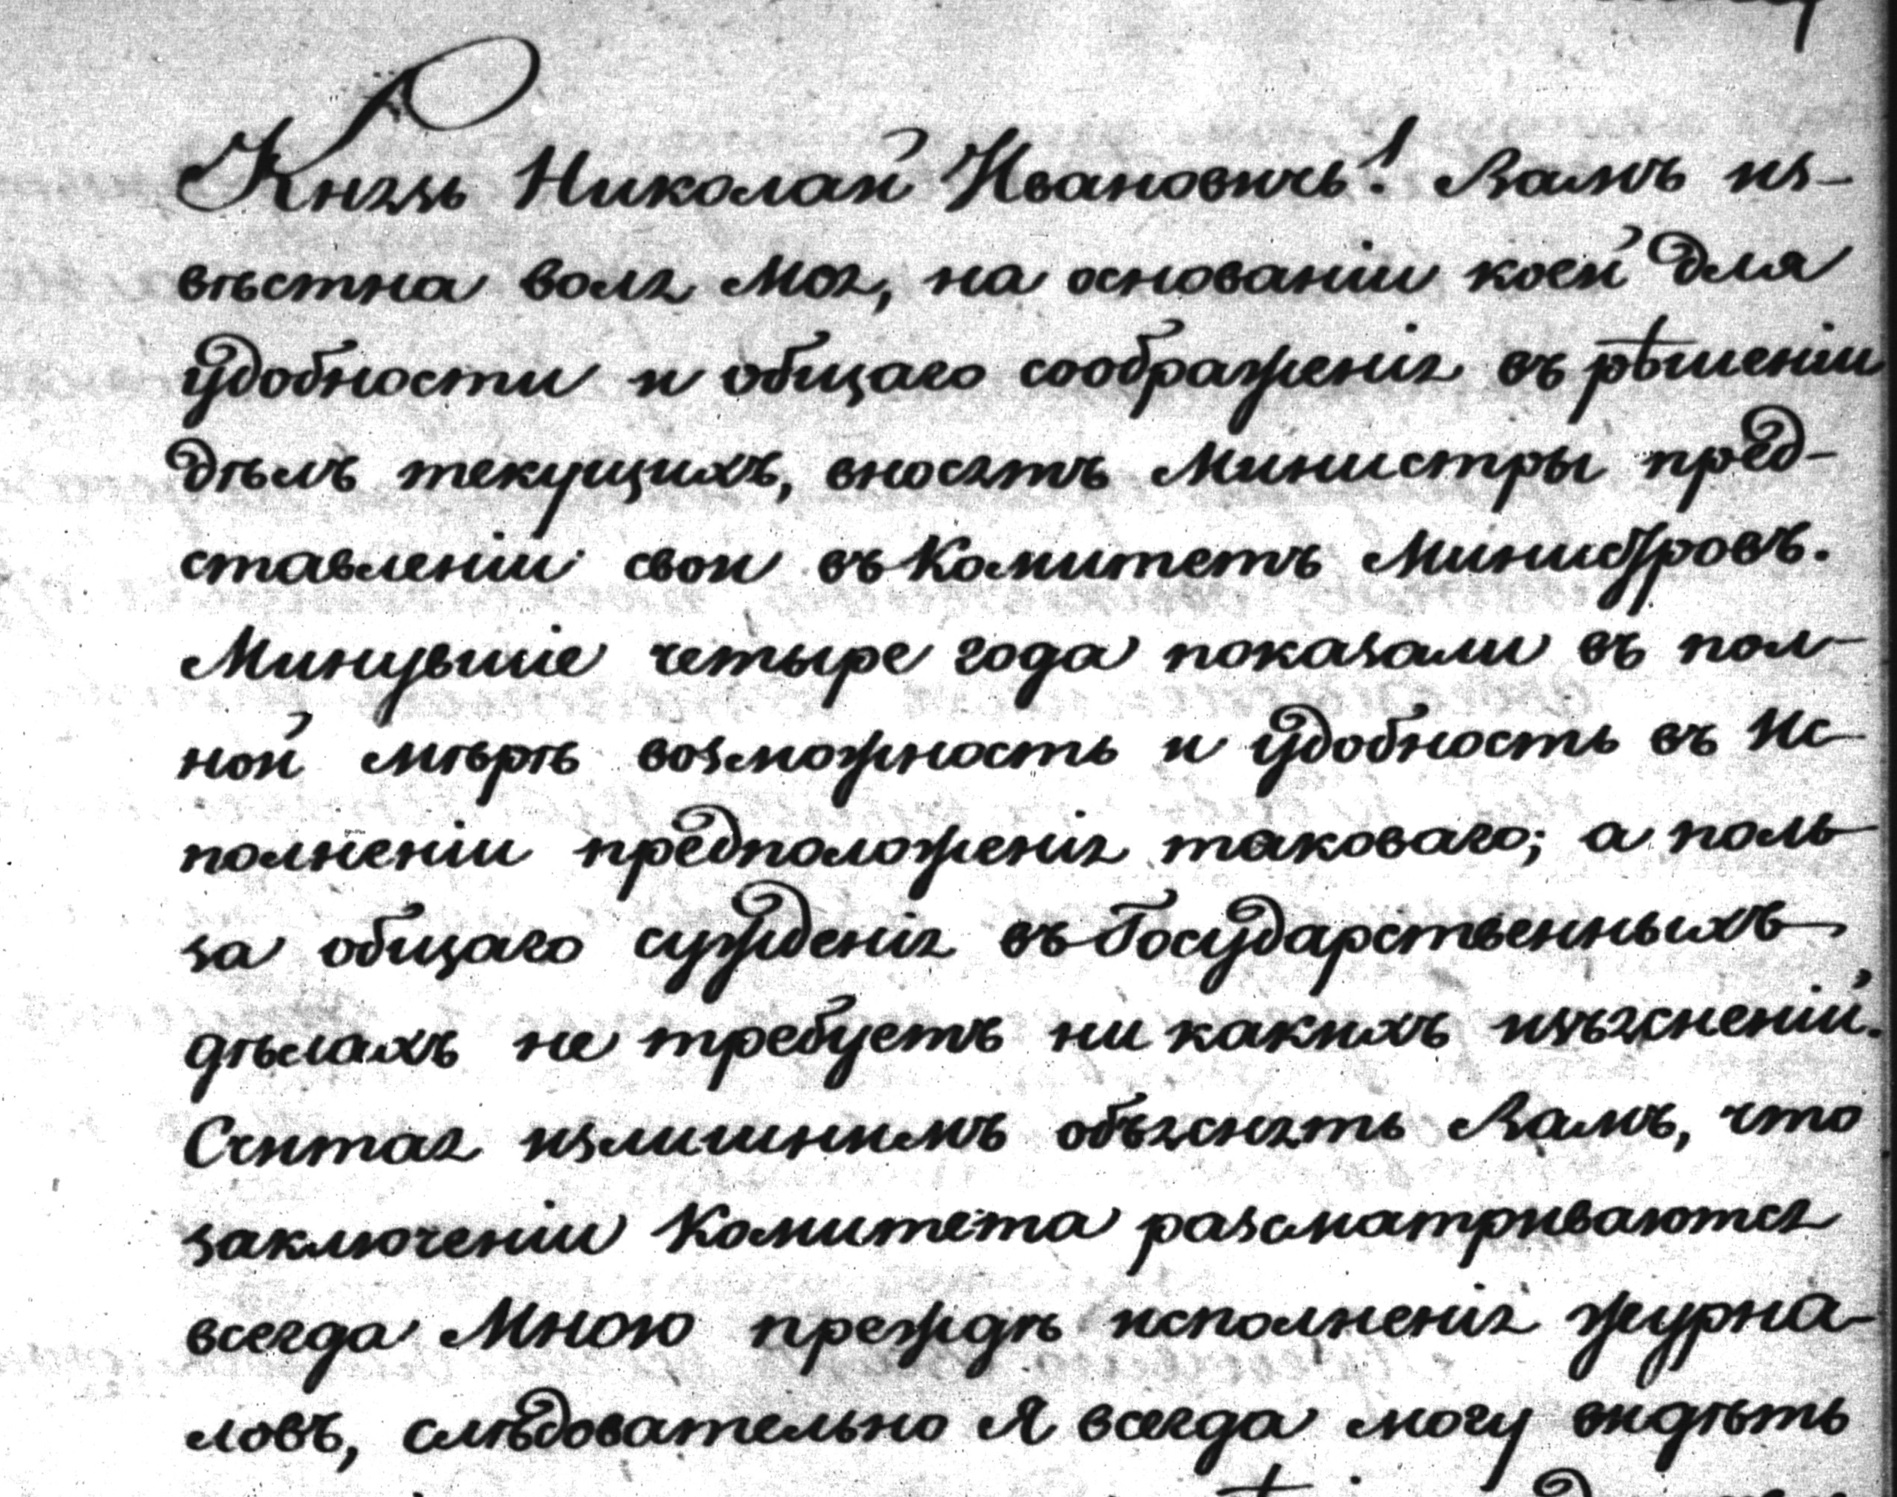 Князь Николай Ивановичь! Вамъ из-
вѣстна воля Моя, на основаніи коей для
удобности и общаго соображенія въ рѣшеніи
дѣлъ текущихъ, вносятъ Министры пред-
ставленіи свои въ Комитетъ Министровъ.
Минувшіе четыре года показали въ пол-
ной мѣрѣ возможность и удобность въ ис-
полненіи предположенія таковаго; а поль-
за общаго сужденія въ Государственныхъ
дѣлахъ не требуетъ ни какихъ изъясненій.
Считая излишнимъ объяснять Вамъ, что
заключеніи Комитета разсматриваются
всегда Мною прежде исполненія журна-
ловъ, слѣдовательно Я всегда могу видѣть